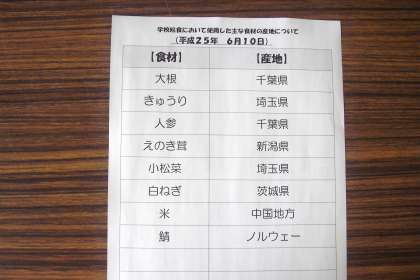 学校給食において使用した主な食材の産地について
（平成25年　6月10日）
【食材】　【産地】
大根　千葉県
きゅうり　埼玉県
人参　千葉県
えのき茸　新潟県
小松菜　埼玉県
白ねぎ　茨城県
米　中国地方
鯖　ノルウェー